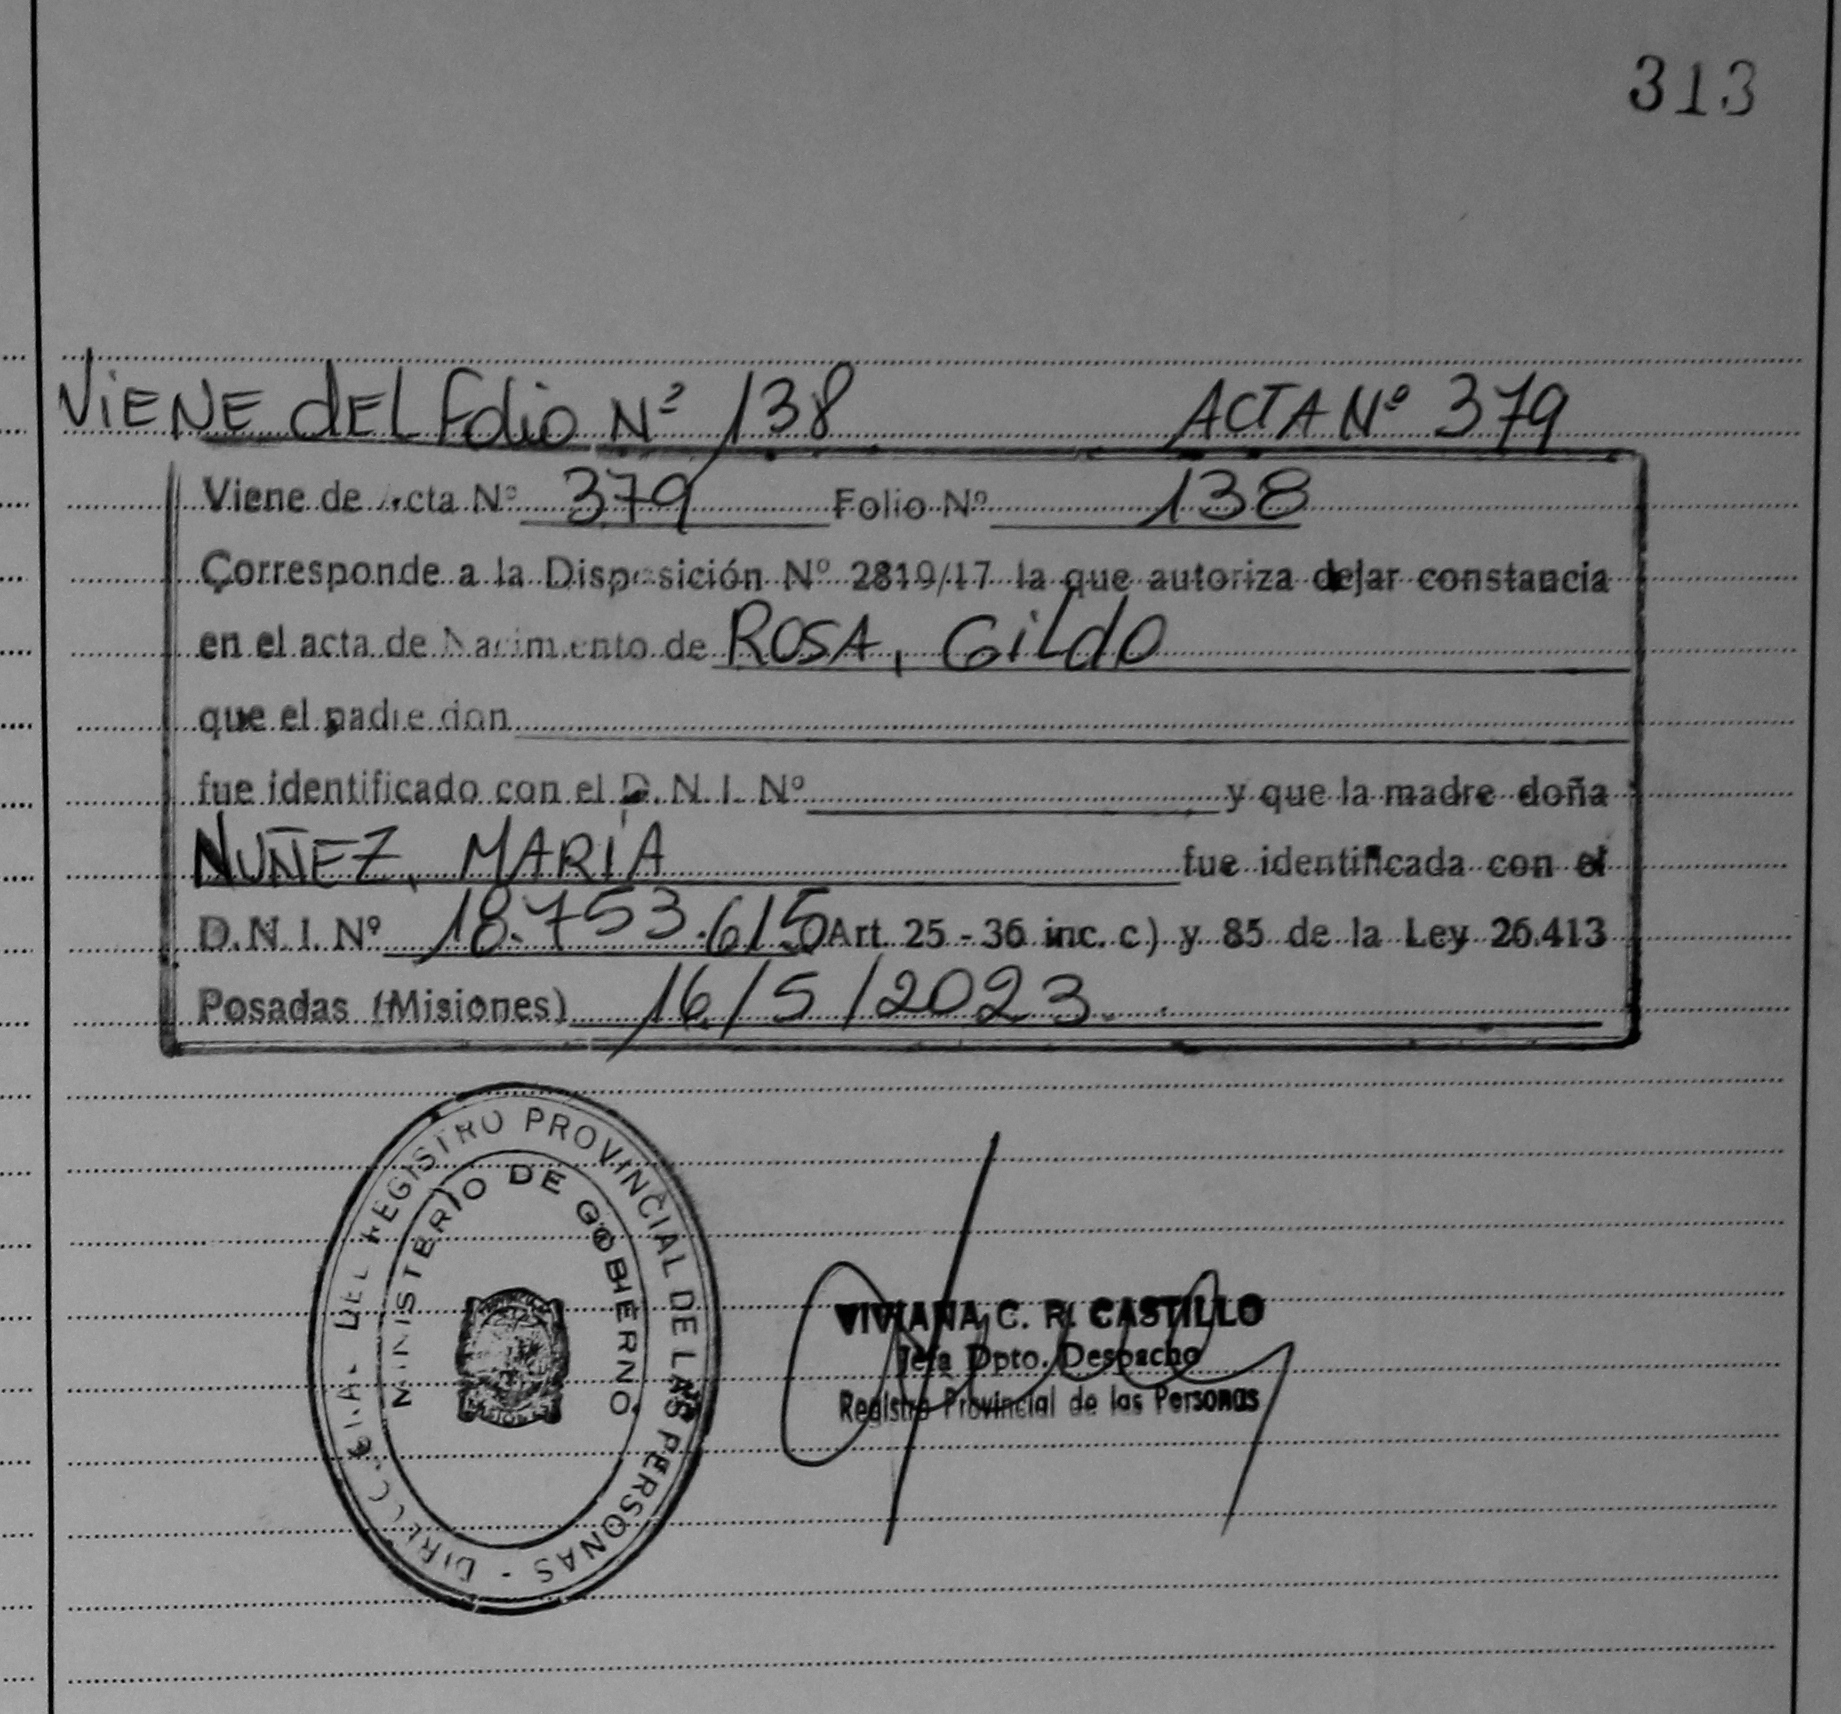 313
ViENE dEL Folio Nº 138 ACTA Nº 379
Viene de Acta Nº 379 Folio Nº 138
Corresponde a la Disposición Nº 2819/17 la que autoriza dejar constancia
en el acta de Nacimiento de ROSA, GiLdO
que el padre don
fue identificado con el D.N.I. Nº y que la madre doña
NUÑEZ, MARÍA fue identificada con el
D.N.I. Nº 18.753.615 Art. 25 - 36 inc. c) y 85 de la Ley 26.413
Posadas (Misiones) 16/5/2023
DIRECC. GRAL. DEL REGISTRO PROVINCIAL DE LAS PERSONAS -
MINISTERIO DE GOBIERNO
MISIONES
VIVIANA C. R. CASTILLO
Jefa Dpto. Despacho
Registro Provincial de las Personas